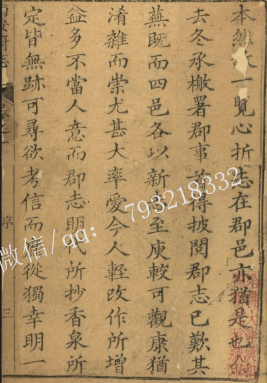 本然一覽心折志在郡邑亦猶是也
去冬承檄署郡事得披閱郡志已歎其
蕪既而四邑各以新志至庚較可觀康猶
淆雜而崇尤甚大率愛今人輕改作所增
益多不當人意而郡志明所抄香泉所
定皆無跡可尋欲考信而從獨幸明一
序
三
微信/qq: 793218332